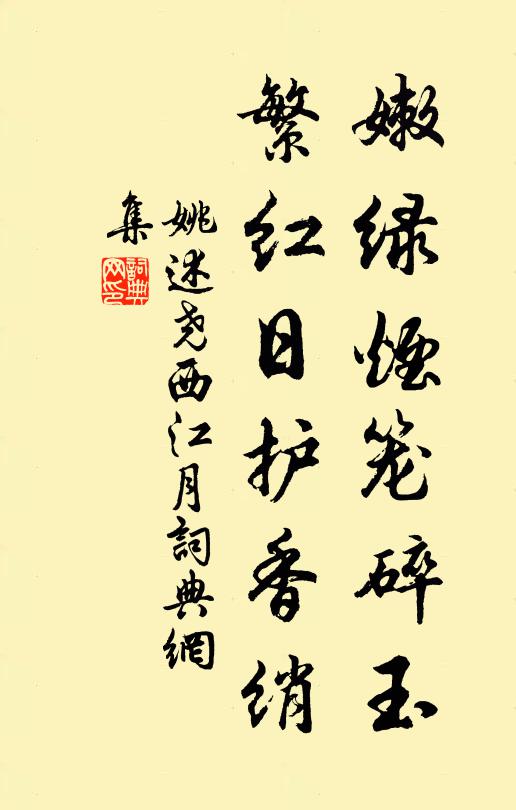 嫩绿烟笼碎玉
繁红日护香绡
姚述尧西江月詞典網
集
詞典
网印